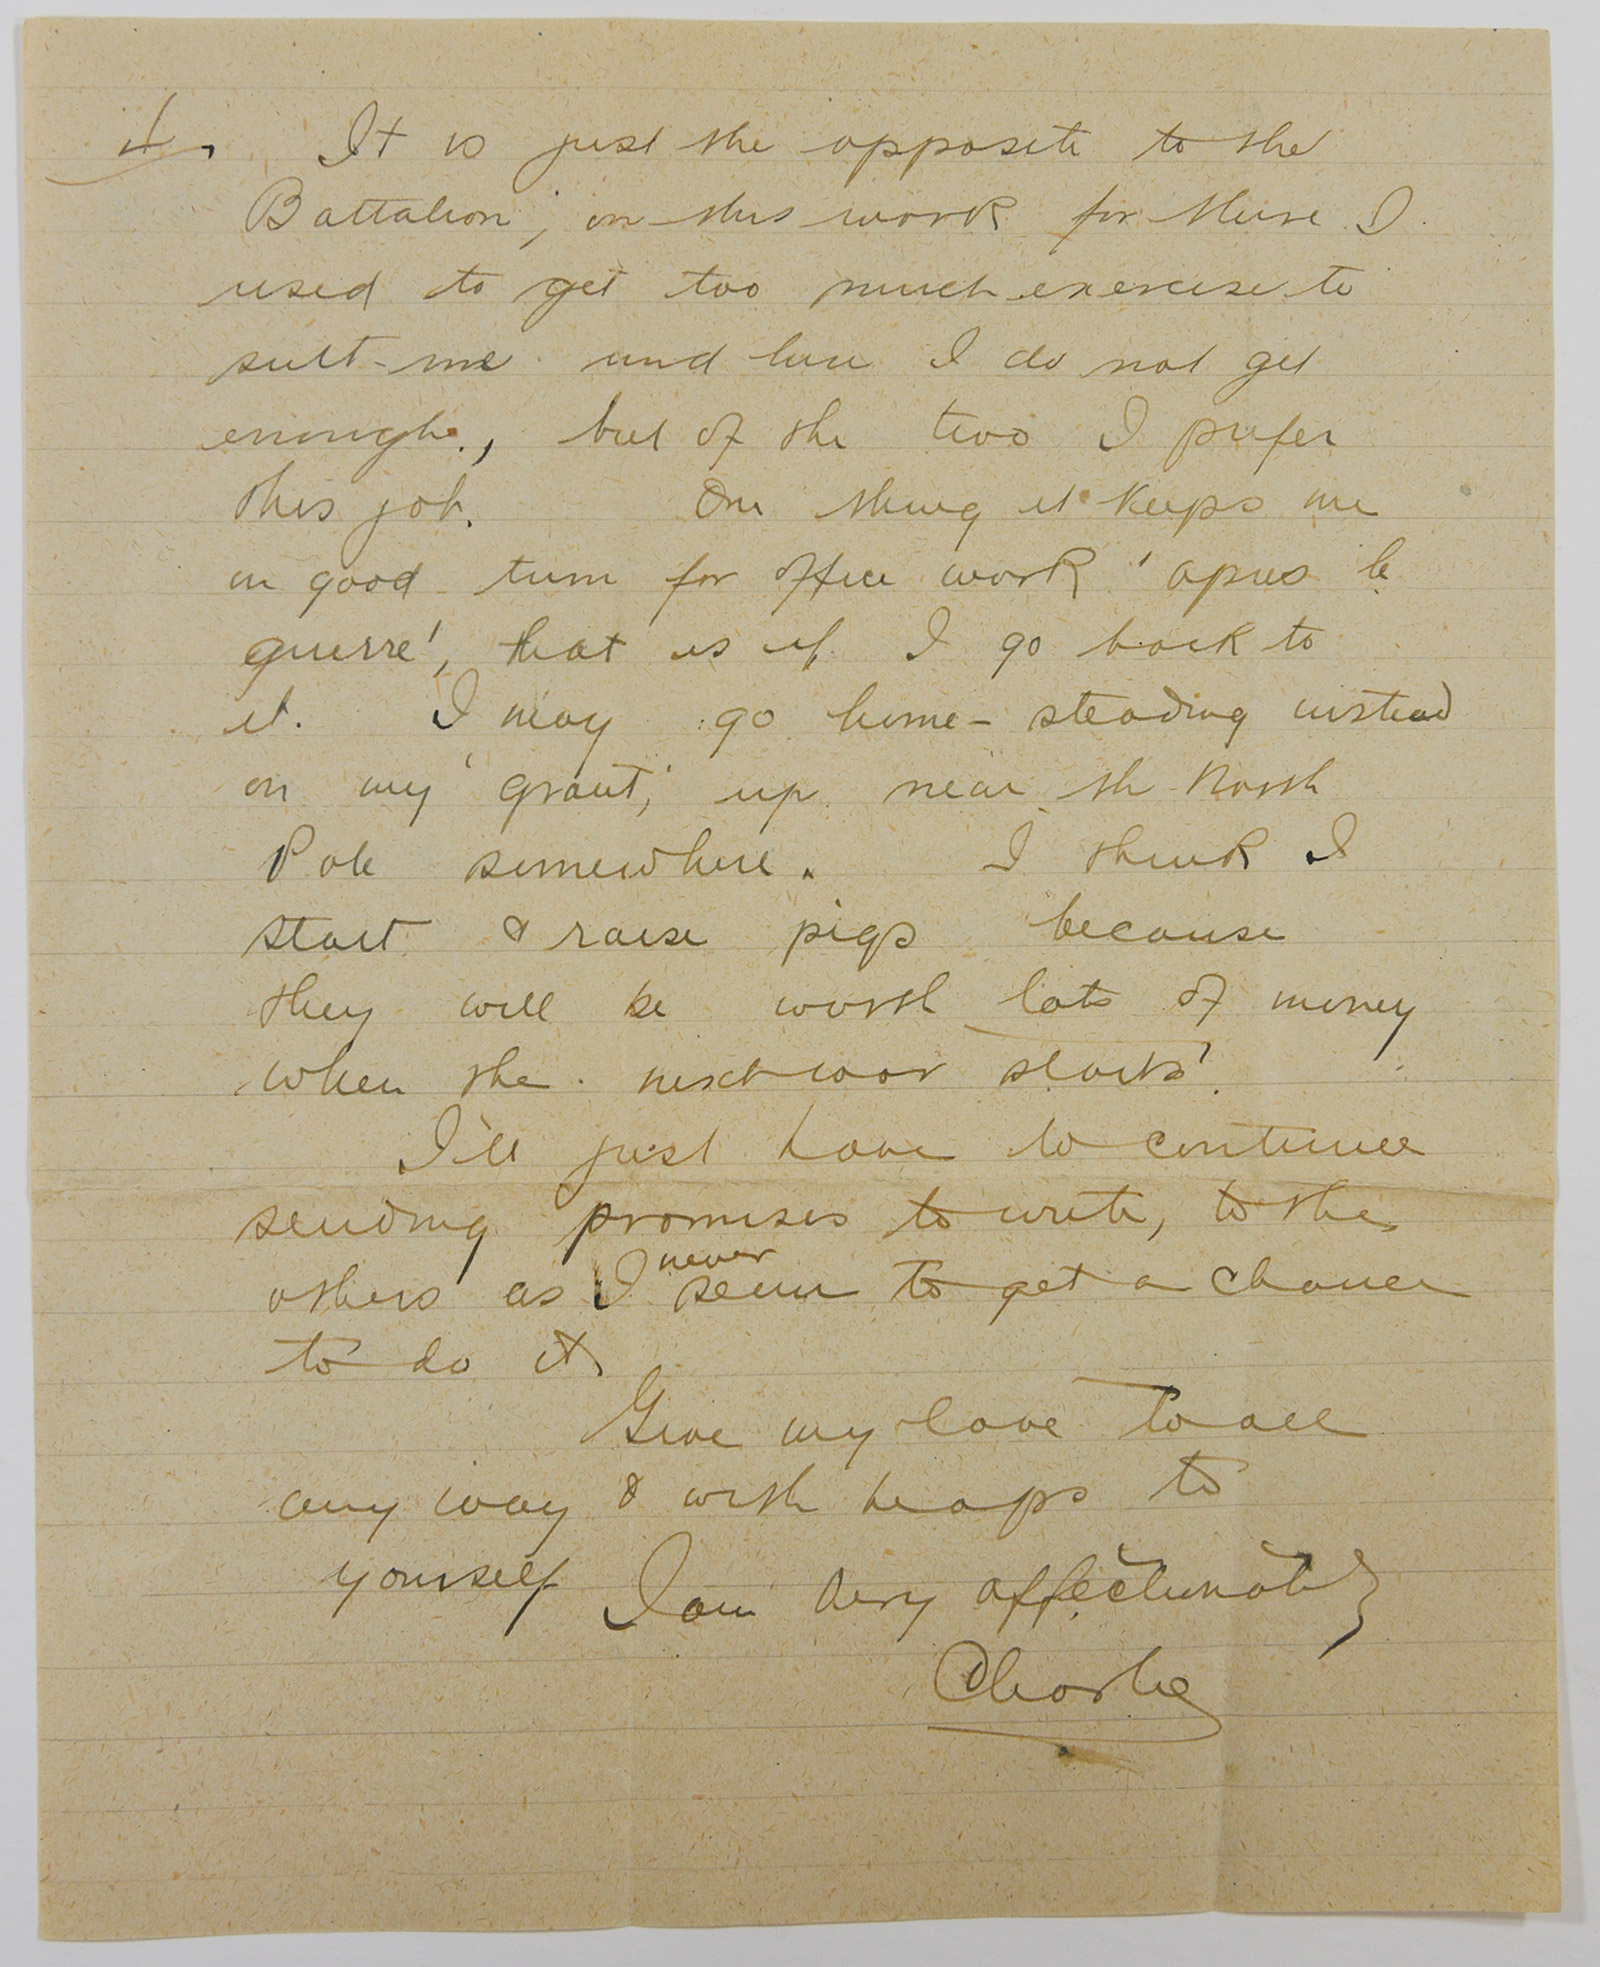 4, It is just the opposite to the
Battalion, on this work for there I
used to get too much exercise to
suit me and here I do not get
enough, but of the two I prefer
this job. One thing it keeps me
in good trim for office work 'apres le
guerre', that is if I go back to
it. I may go home-steading instead
on my 'grant', up near the North
Pole somewhere. I think I
start & raise pigs because
they will be worth lots of money
when the next war starts'.
I'll just have to continue
sending promises to write, to the
others as I never seem to get a chance
to do it.
Give my love to all
any way & with heaps to
yourself I am Very affectionately
Charlie